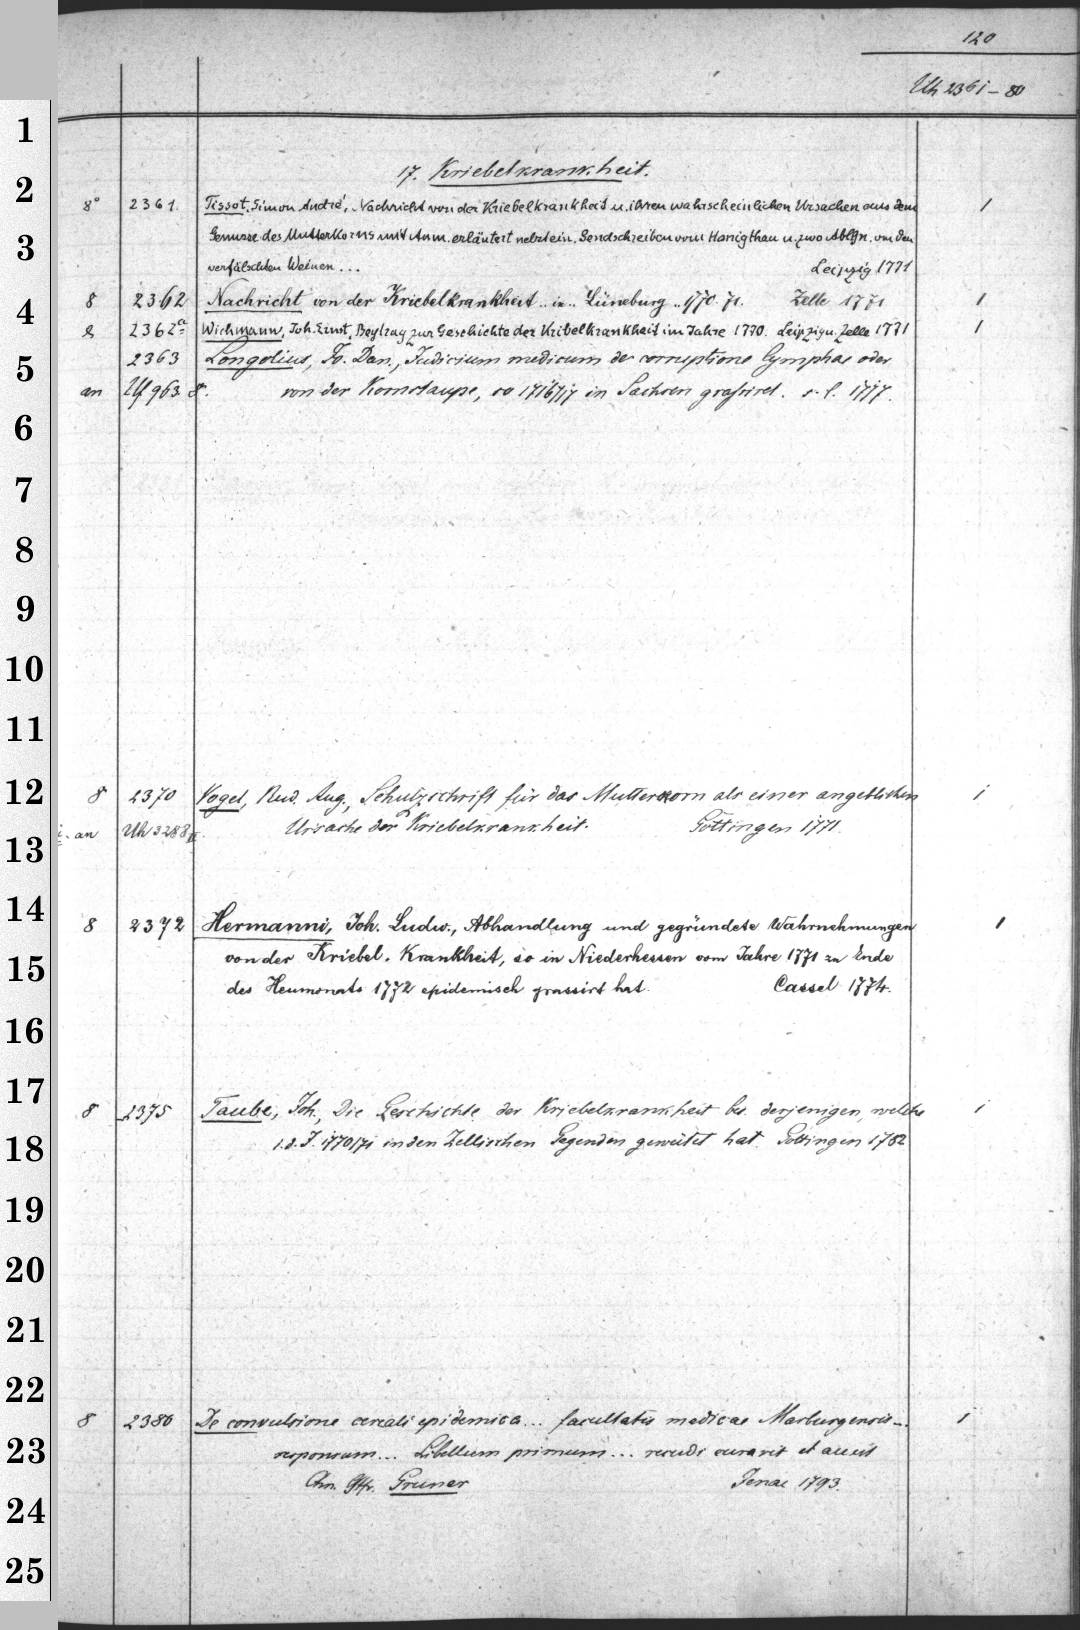 120
Uh 2361 - 80
1
17. Kriebelkrankheit.
2
8° 2361. Tissot, Simon André, Nachricht von der Kriebelkrankheit u. ihren wahrscheinlichen Ursachen aus dem 1
3
Genusse des Mutterkorns mit Anm. erläutert nebst ein. Sendschreiben vom Honigthau u. zwo Abhlgn. von den
verfälschten Weinen... Leipzig 1771
4
8 2362 Nachricht von der Kriebelkrankheit .. in .. Lüneburg .. 1770. 71. Zelle 1771 1
8 2362a Wichmann, Joh. Ernst, Beytrag zur Geschichte der Kribelkrankheit im Jahre 1770. Leipzig u. Zelle 1771 1
5
2363 Longolius, Jo. Dan., Judicium medicum de corruptione lymphae oder
an Uf 963 8°. von der Kornstaupe, so 1716/17 in Sachsen grassiret. s. l. 1717.
6
7
8
9
10
11
12
8 2370 Vogel, Rud. Aug., Schutzschrift für das Mutterkorn als einer angeblichen 1
an Uh 3288 Ursache der Kriebelkrankheit. Göttingen 1771.
13
14
8 2372 Hermanni, Joh. Ludw., Abhandlung und gegründete Wahrnehmungen 1
15
von der Kriebel-Krankheit, so in Niederhessen vom Jahre 1771 zu Ende
des Heumonats 1772 epidemisch grassirt hat. Cassel 1774.
16
17
8 2375 Taube, Joh., Die Geschichte der Kriebelkrankheit bes. derjenigen, welche 1
18
i. d. J. 1770/71 in den Zellischen Gegenden gewütet hat. Göttingen 1782
19
20
21
22
8 2380 De convulsione cereali epidemica... facultatis medicae Marburgensis... 1
23
responsum... Libellum primum... recudi curavit et auxit
Chn. Gfr. Gruner Jenae 1793.
24
25